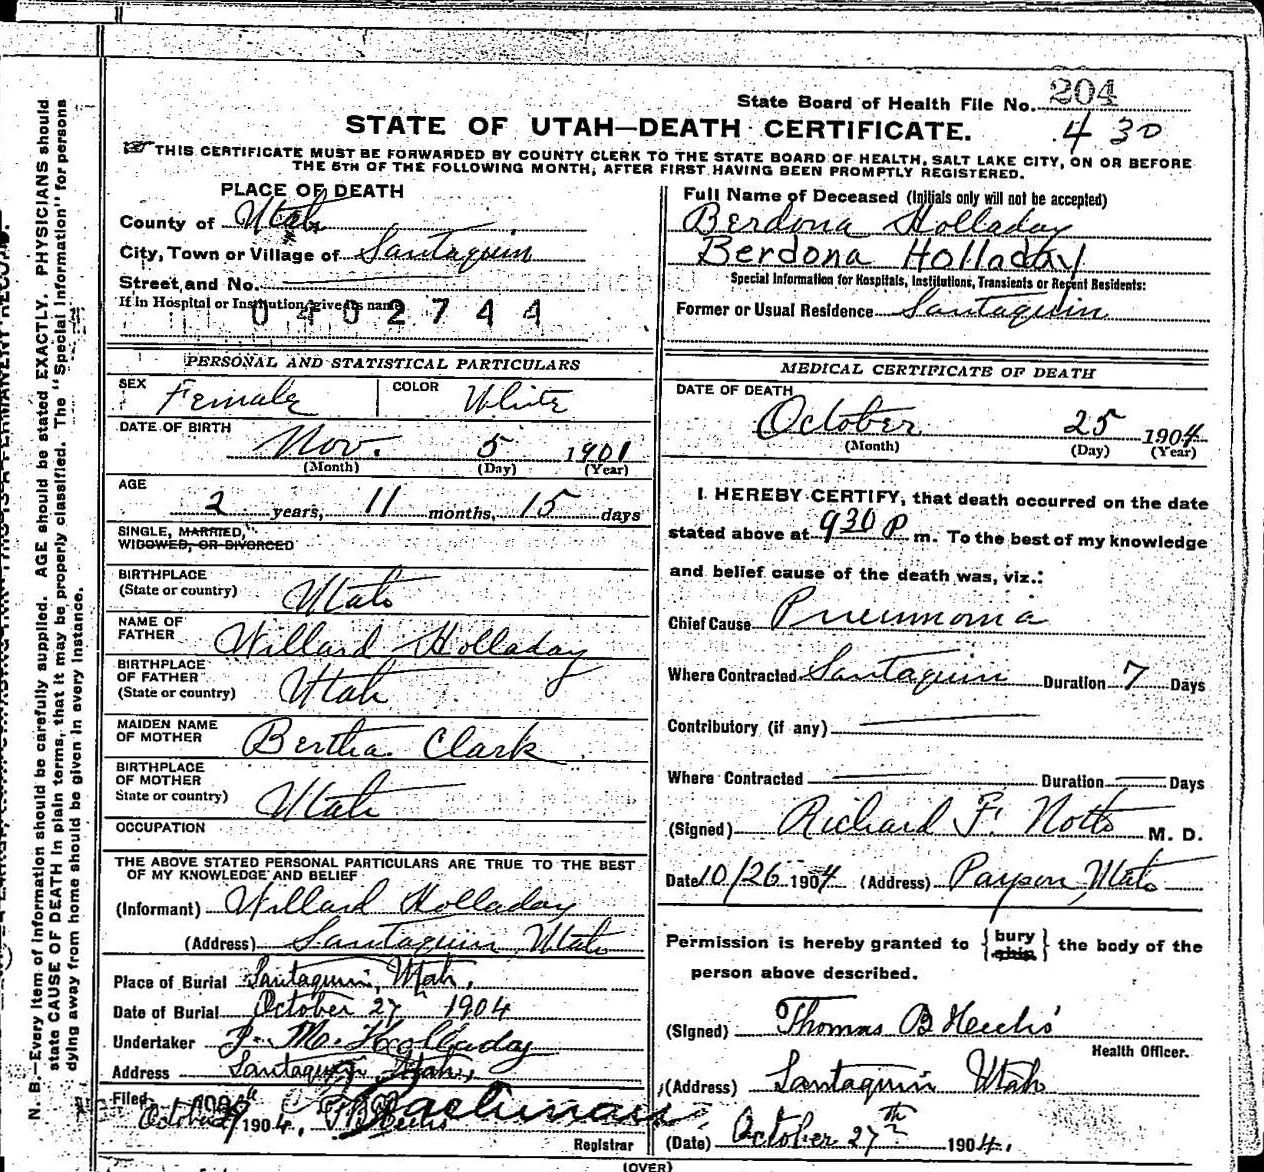 State Board of Health File No. 204
430
STATE OF UTAH—DEATH CERTIFICATE.
THIS CERTIFICATE MUST BE FORWARDED BY COUNTY CLERK TO THE STATE BOARD OF HEALTH, SALT LAKE CITY, ON OR BEFORE
THE 5TH OF THE FOLLOWING MONTH, AFTER FIRST HAVING BEEN PROMPTLY REGISTERED.
PLACE OF DEATH
County of Utah
City, Town or Village of Santaquin
Street and No.
If in Hospital or Institution, give its name
0402744
Full Name of Deceased (Initials only will not be accepted)
Berdona Holladay
Berdona Holladay
Special Information for Hospitals, Institutions, Transients or Recent Residents:
Former or Usual Residence Santaquin
PERSONAL AND STATISTICAL PARTICULARS
SEX Female COLOR White
DATE OF BIRTH
Nov. 5 1901
(Month) (Day) (Year)
AGE
2 years, 11 months, 15 days
SINGLE, MARRIED,
WIDOWED, OR DIVORCED
BIRTHPLACE
(State or country) Utah
NAME OF
FATHER Willard Holladay
BIRTHPLACE
OF FATHER
(State or country) Utah
MAIDEN NAME
OF MOTHER Bertha Clark
BIRTHPLACE
OF MOTHER
State or country) Utah
OCCUPATION
THE ABOVE STATED PERSONAL PARTICULARS ARE TRUE TO THE BEST
OF MY KNOWLEDGE AND BELIEF
(Informant) Willard Holladay
(Address) Santaquin Utah
Place of Burial Santaquin, Utah,
Date of Burial October 27 1904
Undertaker J. M. Holladay
Address Santaquin, Utah,
Filed
October 1904,
Registrar
MEDICAL CERTIFICATE OF DEATH
DATE OF DEATH
October 25 1904
(Month) (Day) (Year)
I HEREBY CERTIFY, that death occurred on the date
stated above at 930 P m. To the best of my knowledge
and belief cause of the death was, viz.:
Chief Cause Pneumonia
Where Contracted Santaquin Duration 7 Days
Contributory (if any)
Where Contracted Duration Days
(Signed) Richard F. M. D.
Date 10/26 1904 (Address) Payson, Utah
Permission is hereby granted to {bury ship} the body of the
person above described.
(Signed) Thomas B Heelis
Health Officer.
(Address) Santaquin Utah
(Date) October 27th 1904.
(OVER)
N. B.—Every item of information should be carefully supplied. AGE should be stated EXACTLY. PHYSICIANS should
state CAUSE OF DEATH in plain terms, that it may be properly classified. The "Special Information" for persons
dying away from home should be given in every instance.